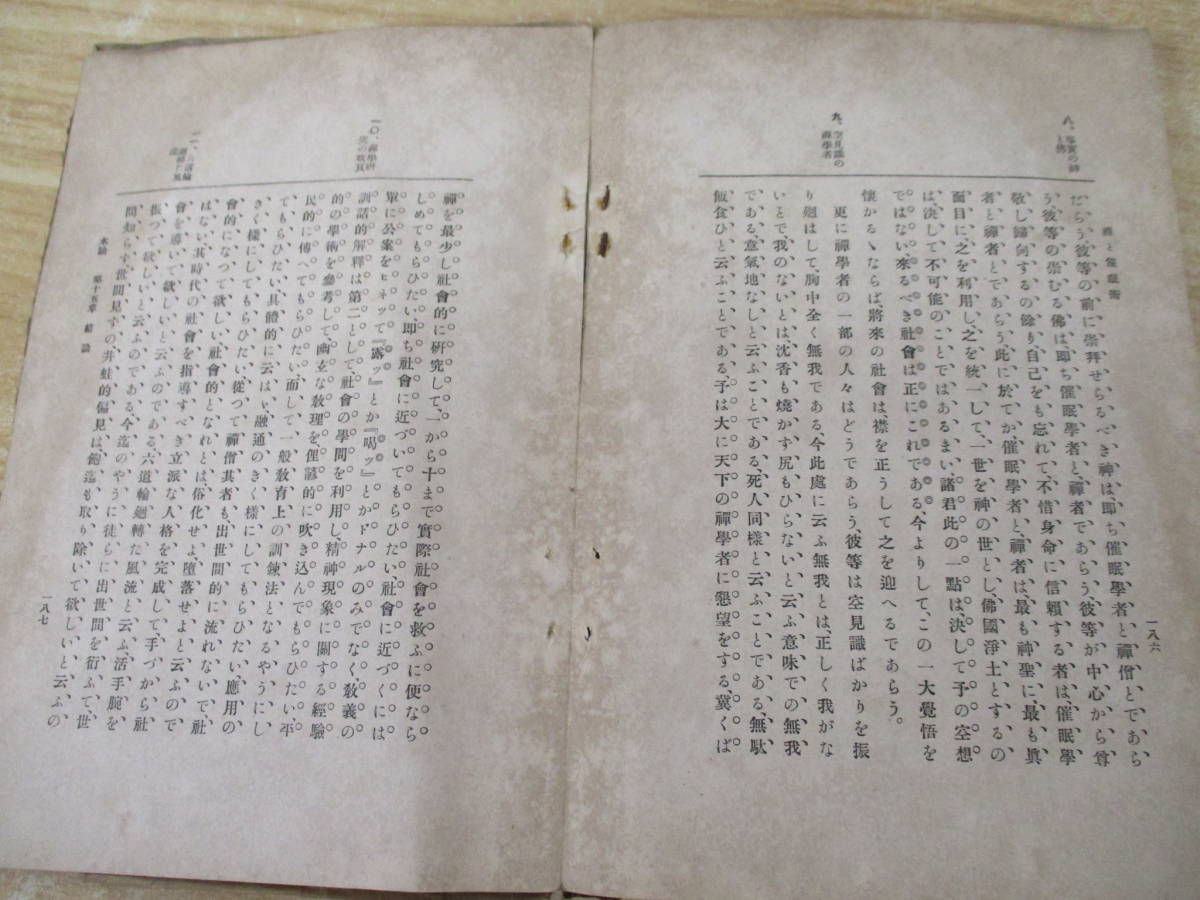 一八六
禪と催眠術
八、事實の神と佛
だらう、彼等の前に崇拜せらるべき神は、即ち催眠學者と禪僧とであら
う、彼等の崇むる佛は、即ち催眠學者と禪者であらう、彼等が中心から尊
敬し歸向するの餘り自己をも忘れて、不惜身命に信賴する者は、催眠學
者と禪者とであらう、此に於てか、催眠學者と禪者は、最も神聖に、最も眞
面目に、之を利用し、之を統一して、一世を神の世とし、佛國淨土とするの
は、決して、不可能のことではあるまい、諸君此の一點は、決して予の空想
ではない、來るべき社會は正にこれである、今よりして、この一大覺悟を
懷かるゝならば將來の社會は、襟を正うして之を迎へるであらう。
九、空見識の禪學者
更に禪學者の一部の人々はどうであらう、彼等は空見識ばかりを振
り廻はして、胸中全く無我である、今此處に云ふ無我とは、正しく我がな
いとで、我のないとは、沈香も燒かず屁もひらないと云ふ意味での無我
である、意氣地なしと云ふことである、死人同樣と云ふことである、無駄
飯食ひと云ふことである、予は大に天下の禪學者に懇望をする、冀くば
禪を最少し社會的に研究して、一から十まで實際社會を救ふに便なら
しめてもらひたい、即ち社會に近づいてもらひたい、社會に近づくには
一〇、禪學研究の眞
單に公案をヒネッて『露ッ』とか『喝ッ』とかドナルのみでなく、敎義の
訓話的解釋は第二として、社會の學問を利用し、精神現象に關する經驗
的の學術を參考して、幽玄な敎理を、俚諺的に吹き込んでもらひたい、平
民的に傳へてもらひたい、而して一般敎育上の訓練法となるやうにし
てもらひたい、具體的に云はゞ、融通のきく樣にしてもらひたい、應用の
きく樣にしてもらひたい、從つて禪僧其者も、出世間的に流れないで、社
會的になつて欲しい、社會的となれとは、俗化せよ、墮落せよと云ふので
はない、其時代の社會を指導すべき立派な人格を完成して、手づから社
一一、六道輪廻轉た風流
會を導いて欲しいと云ふのである、六道輪廻轉た風流と云ふ、活手腕を
振つて欲しいと云ふのである、今迄のやうに徒らに出世間を衒ふて、世
間知らず、世間見ずの井蛙的偏見は、飽迄も取り除いて欲しいと云ふの
本論 第十五章 結論
一八七